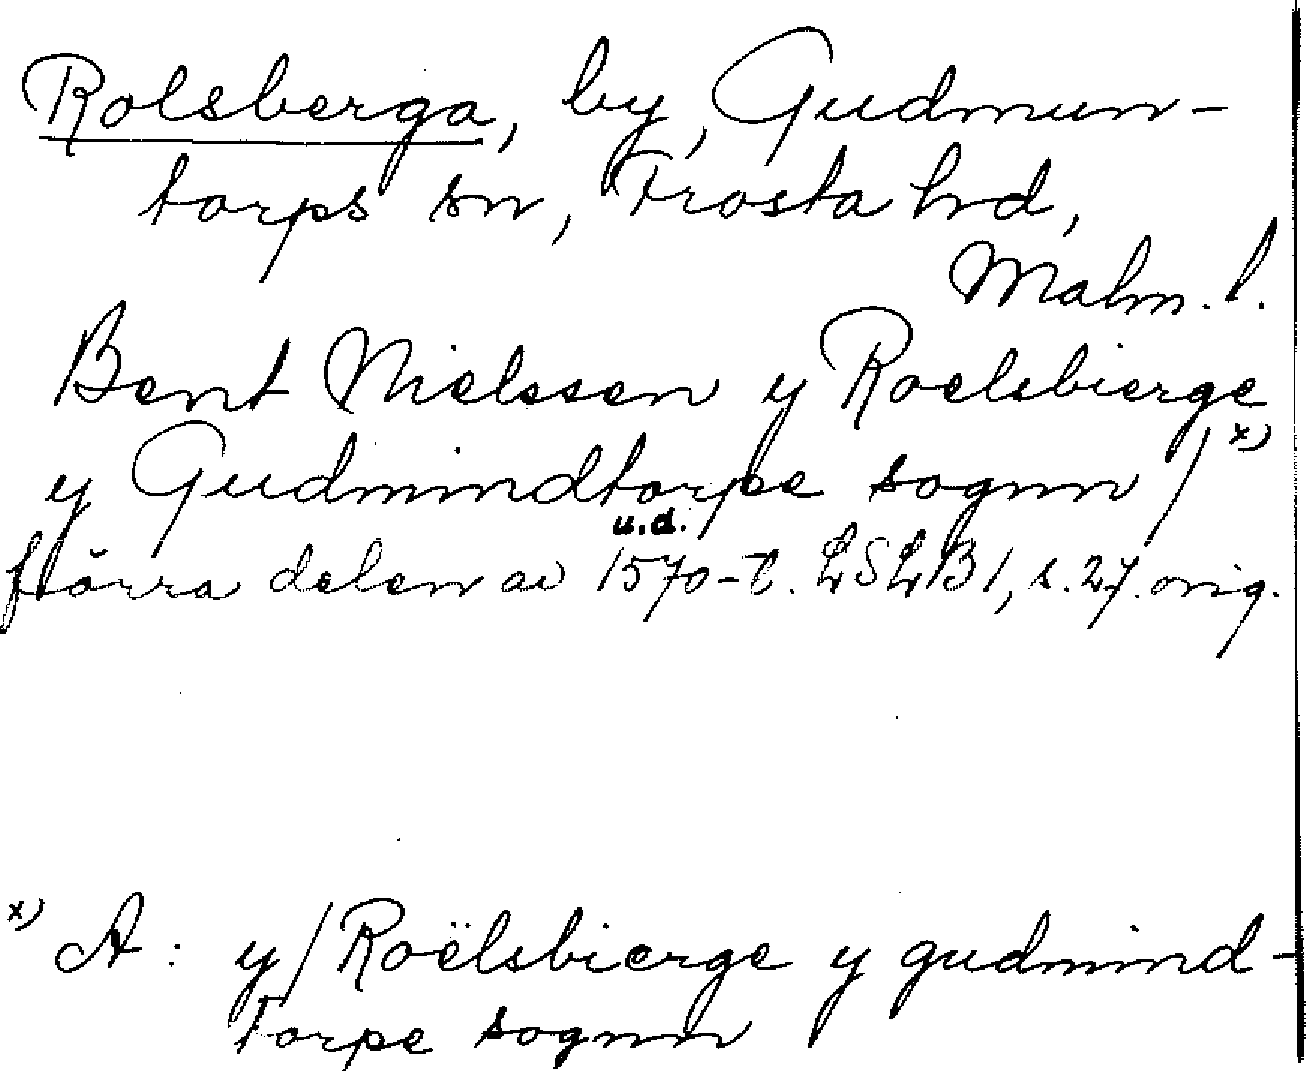 Rolsberga, by, Gudmun-
torps sn, Frosta hrd,
Malm. l.
Bent Nielssen y Roelsbierge
y Gudmindtorpe sognn / x)
u.d.
förra delen av 1570-t. LSLB 1, s. 27. orig.
x) A: y/Roëlsbierge y gudmind-
torpe sognn